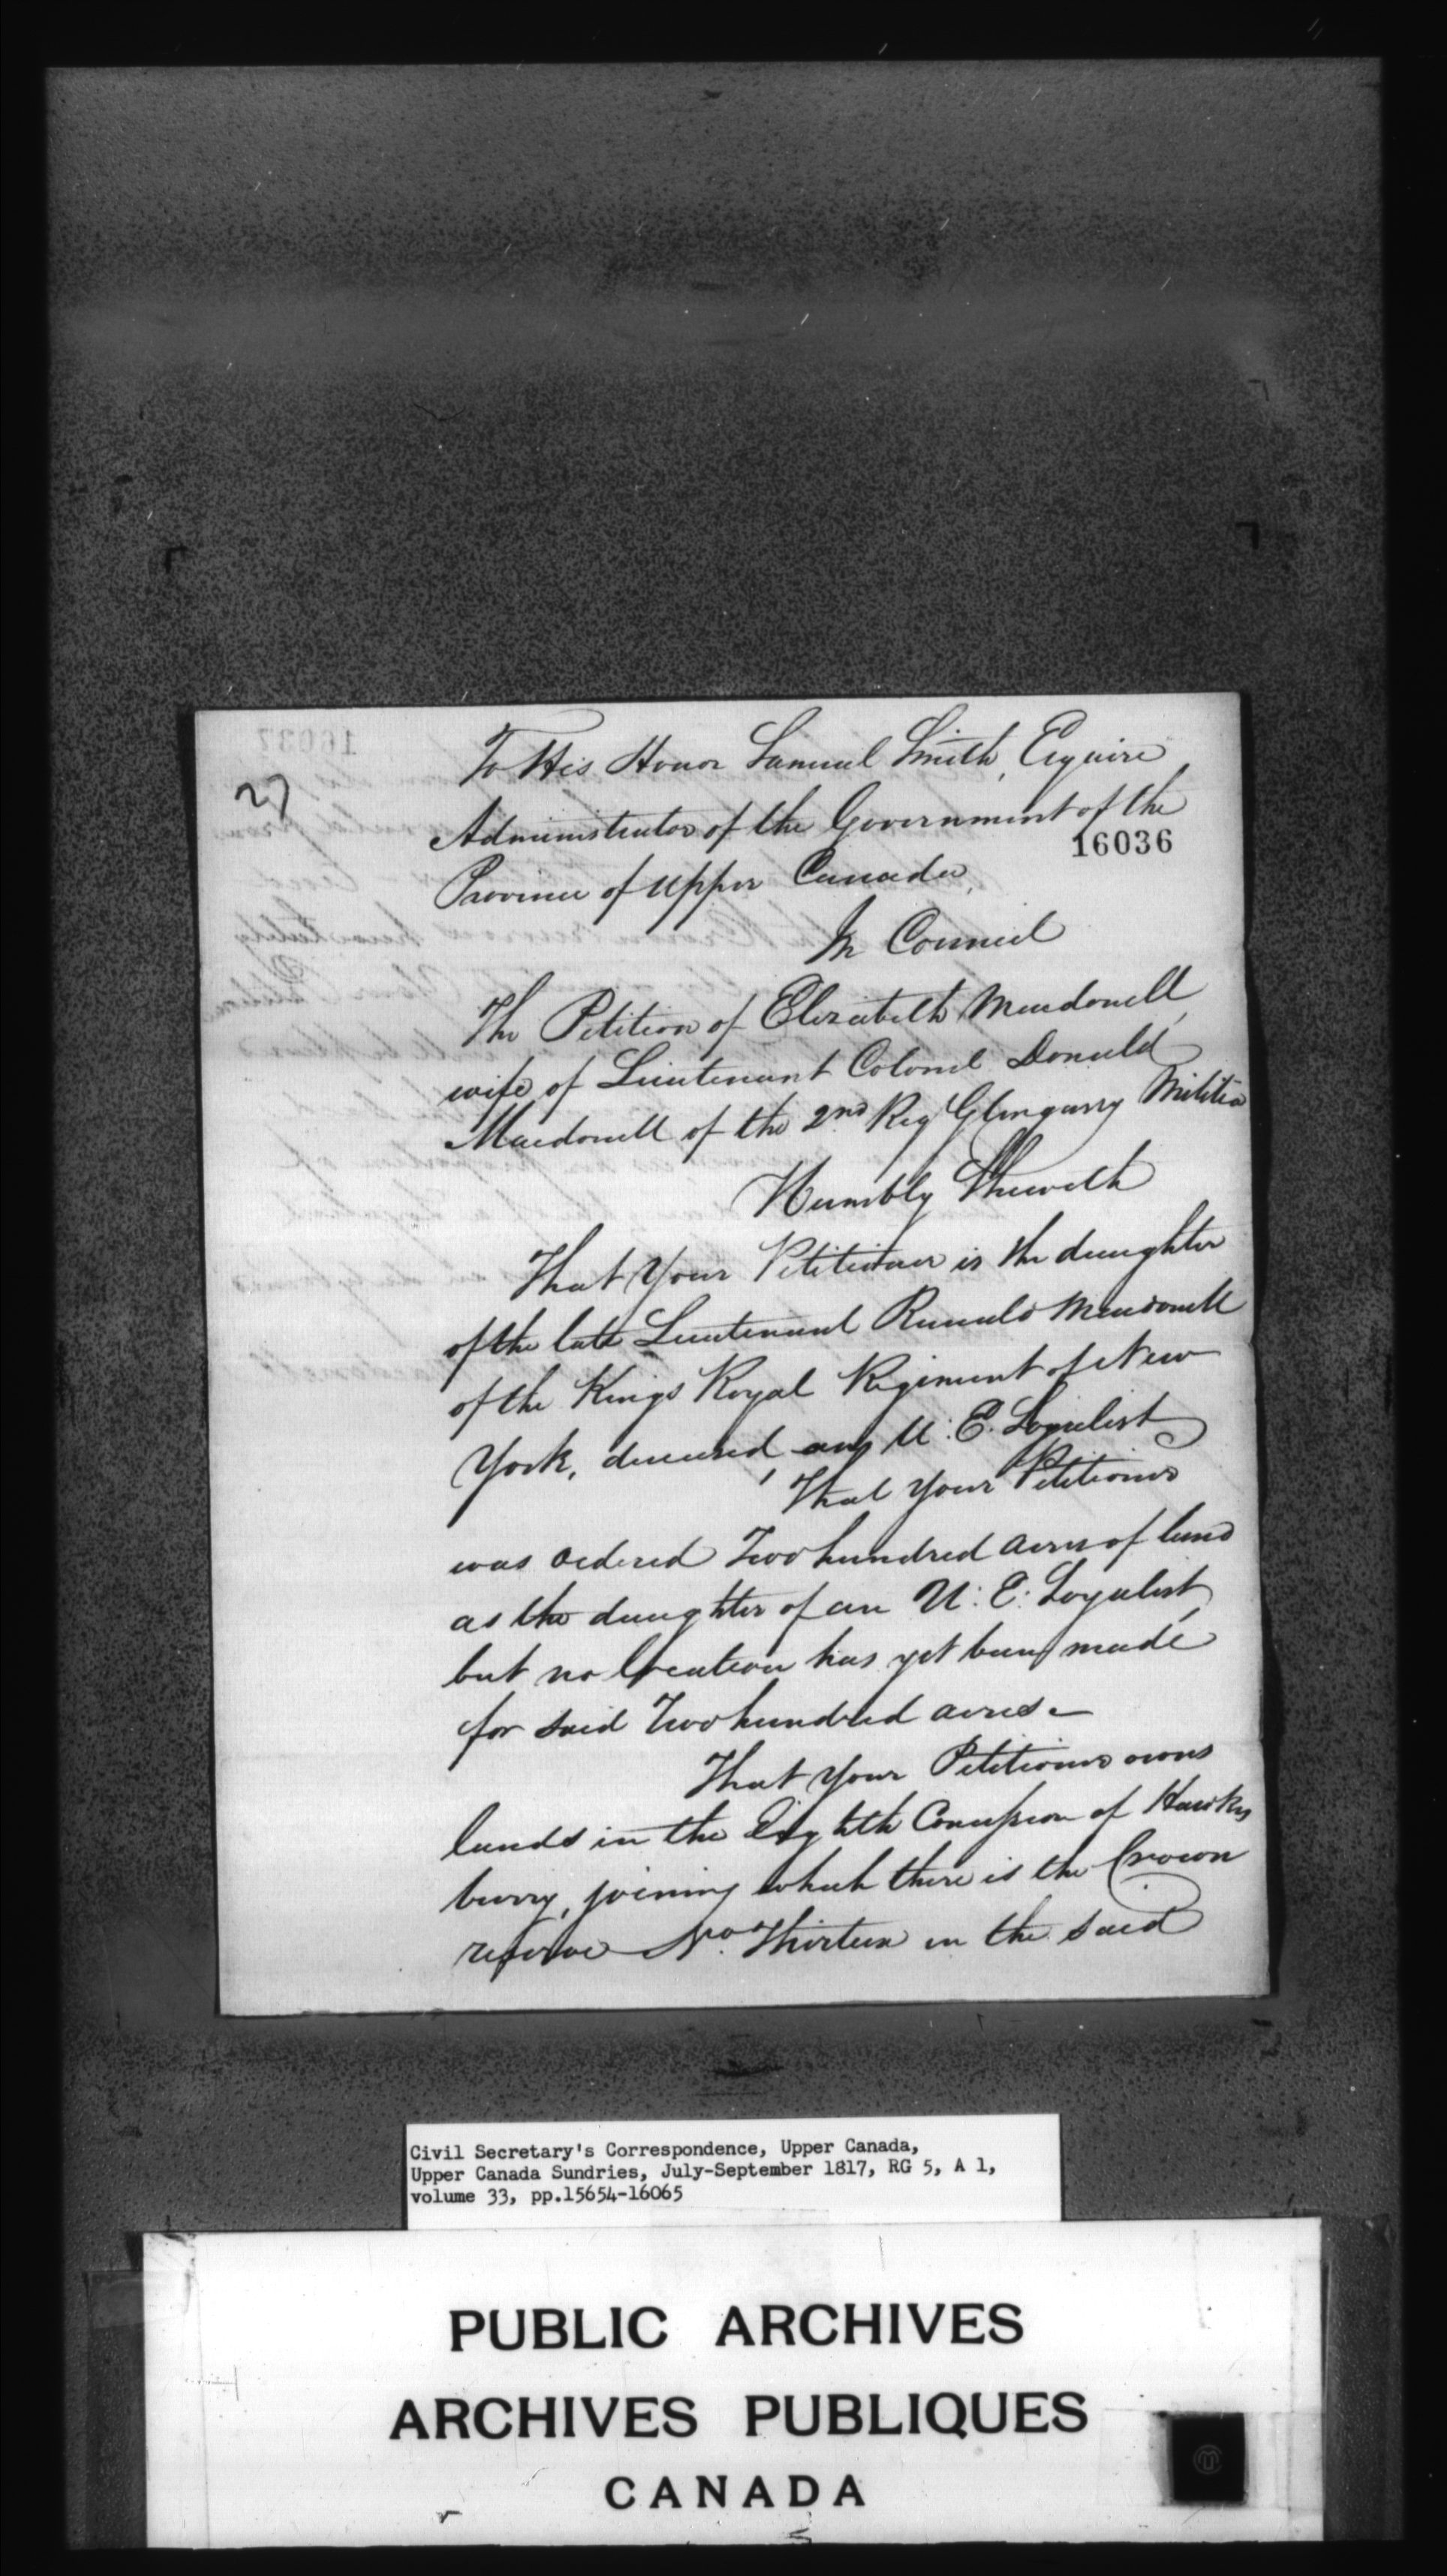 27
To His Honor Samuel Smith, Esquire
Administrator of the Government of the
16036
Province of Upper Canada,
In Council
The Petition of Elizabeth Macdonell,
wife of Lieutenant Colonel Donald
Macdonell of the 2nd Reg Glengarry Militia
Humbly Sheweth
That Your Petitioner is the daughter
of the late Lieutenant Ranald Macdonell
of the Kings Royal Regiment of New
York, deceased, an U. E. Loyalist
That Your Petitioner
was ordered Two hundred acres of land
as the daughter of an U. E. Loyalist,
but no location has yet been made
for said Two hundred acres.—
That Your Petitioner owns
lands in the Eighth Concession of Hawkes
burry, joining which there is the Crown
reserve No. Thirteen in the said
Civil Secretary's Correspondence, Upper Canada,
Upper Canada Sundries, July-September 1817, RG 5, A 1,
volume 33, pp.15654-16065
PUBLIC ARCHIVES
ARCHIVES PUBLIQUES
CANADA